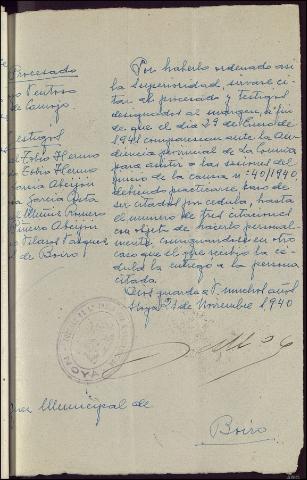 Procesado
Ventoso
de Camojo.
Testigos
Tobio Hermo
Tobio Hermo
Garcia Abeijon
Garcia Outa
Muñiz Romero
Piñeiro Abeijon
Vilacot Vazquez
de Boiro
Por haberlo ordenado asi
la Superioridad, sirvase ci-
tar al procesado y testigos
designados al margen, a fin
de que el dia 29 de Enero de
1941 comparezcan ante la Au-
diencia provincial de la Coruña
para asistir a las sesiones del
juicio de la causa nº 40/1940,
debiendo practicarse, caso de
ser citados por cedula, hasta
el numero de tres citaciones
con objeto de hacerlo personal-
mente, consignandose en otro
caso que el que recibio la cé-
dula la entregó a la persona
citada.
Dios guarde a V. muchos años
Noya 21 de Noviembre 1940
NOYA
Juez Municipal de
Boiro